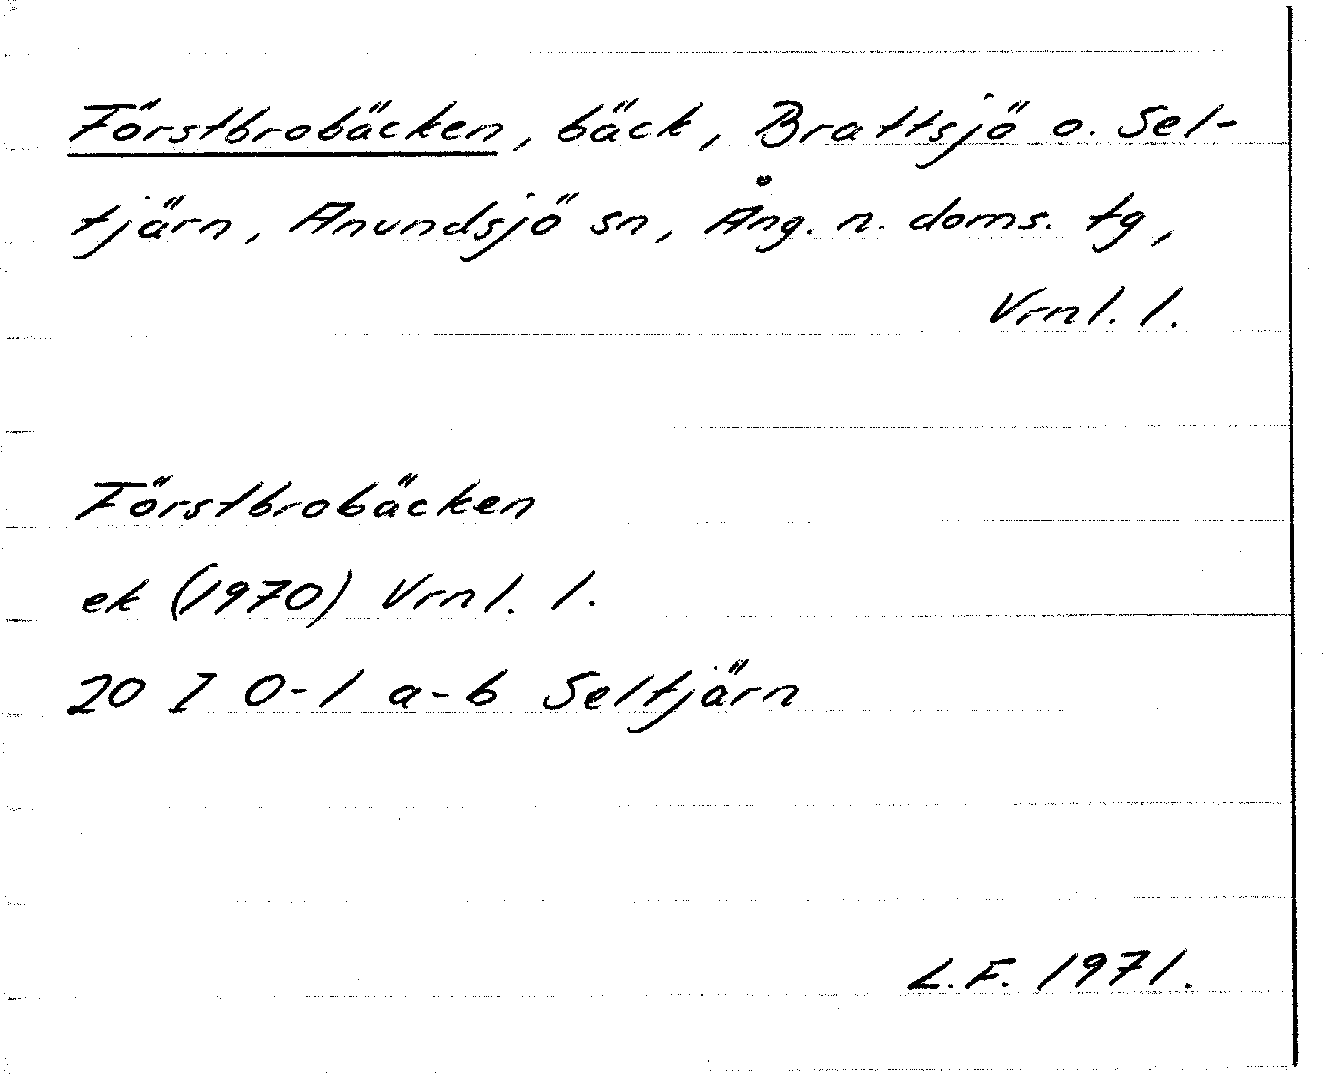 Förstbrobäcken, bäck, Brattsjö o. Sel-
tjärn, Anundsjö sn, Ång. n. doms. tg,
Vrnl. l.
Förstbrobäcken
ek (1970) Vrnl. l.
20 I 0-1 a-b Seltjärn
L.F. 1971.